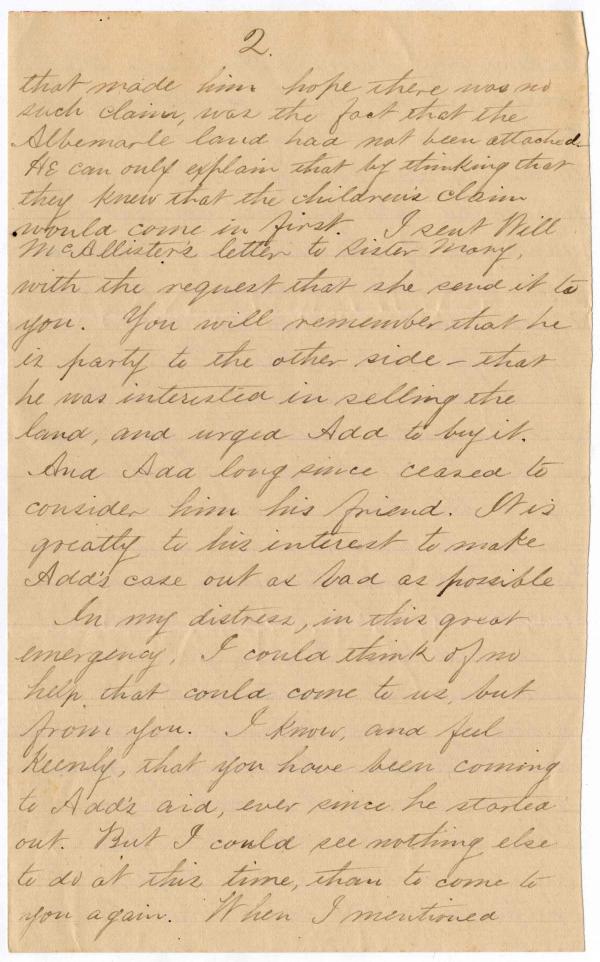 2.
that made him hope there was no
such claim, was the fact that the
Albemarle land had not been attached.
He can only explain that by thinking that
they knew that the children's claim
would come in first. I sent Will
McAllister's letter to Sister Mary,
with the request that she send it to
you. You will remember that he
is party to the other side – that
he was interested in selling the
land, and urged Add to buy it.
And Add long since ceased to
consider him his friend. It is
greatly to his interest to make
Add's case out as bad as possible
In my distress, in this great
emergency, I could think of no
help that could come to us, but
from you. I know, and feel
keenly, that you have been coming
to Add's aid, ever since he started
out. But I could see nothing else
to do at this time, than to come to
you again. When I mentioned